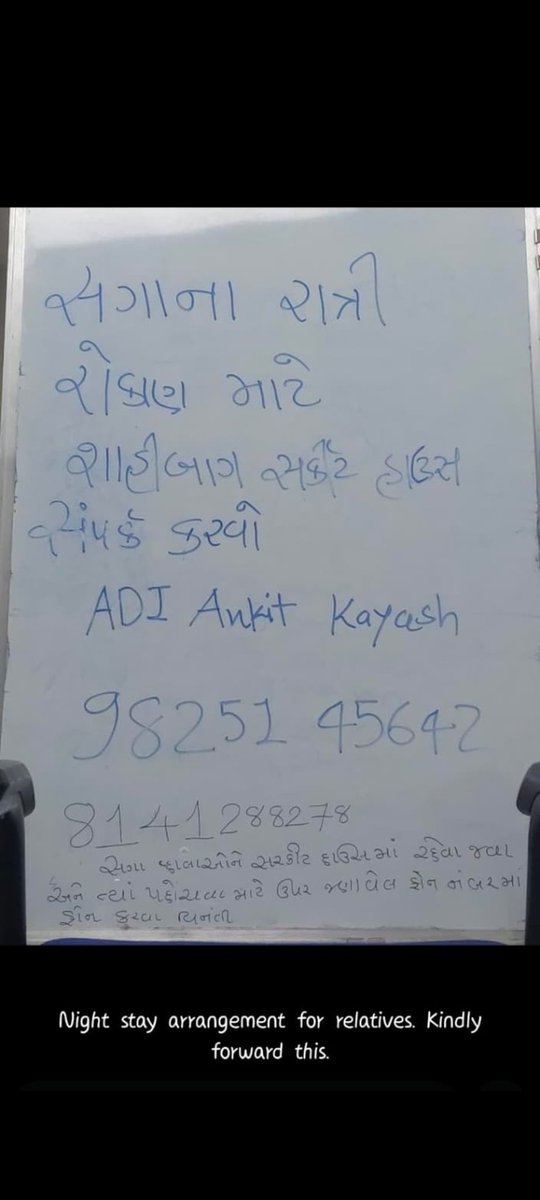 સગાના રાત્રી
રોકાણ માટે
શાહીબાગ સર્કીટ હાઉસ
સંપર્ક કરવો
ADI Ankit Kayash
98251 45642
8141288278
સગા વ્હાલાઓને સરકીટ હાઉસમાં રહેવા જવા
અને ત્યાં પહોંચવા માટે ઉપર જણાવેલ ફોન નંબરમાં
ફોન કરવા વિનંતી
Night stay arrangement for relatives. Kindly
forward this.